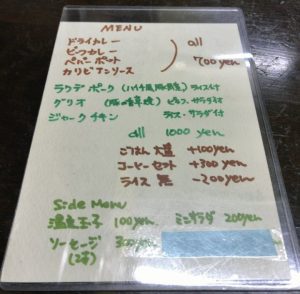 MENU
ドライカレー
ビーフカレー
ペパーポット
カリビアンソース
all 700 yen
ラクデ ポーク ライス付
グリオ ピルフ、サラダ付
ジャークチキン ライス・サラダ付
all 1000 yen
ごはん 大盛 +100yen
コーヒーセット +300yen
ライス 無 -200yen
Side Menu
温泉玉子 100yen ミニサラダ 200yen
ソーセージ 300yen
(2本)